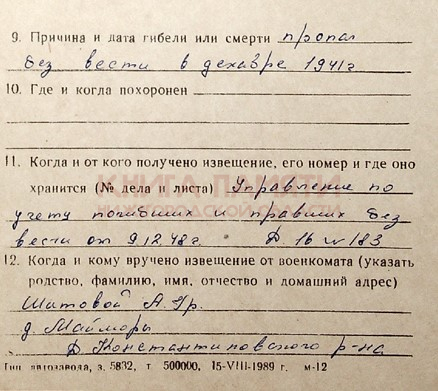 9. Причина и дата гибели или смерти пропал
без вести в декабре 1941г
10. Где и когда похоронен
11. Когда и от кого получено извещение, его номер и где оно
хранится (№ дела и листа) Управление по
КНИГА ПАМЯТИ
НИЖЕГОРОДСКОЙ ОБЛАСТИ
учету погибших и пропавших без
вести от 9.12.48г. Д. 16 № 183
12. Когда и кому вручено извещение от военкомата (указать
родство, фамилию, имя, отчество и домашний адрес)
Шитовой А. Гр.
д. Майморы
Д. Константиновского р-на
Тип. автозавода, з. 5832, т 500000, 15-VIII-1989 г. м-12